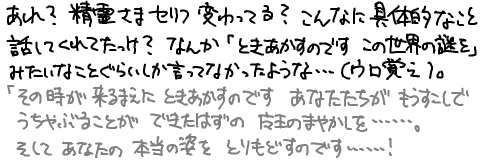 あれ？精霊さまセリフ変わってる？こんなに具体的なこと
話してくれてたっけ？なんか「ときあかすのです この世界の謎を」
みたいなことぐらいしか言ってなかったような…（ウロ覚え）。
「その時が来るまえに ときあかすのです あなたたちが もうすこしで
うちやぶることが できたはずの 左王のまやかしを……。
そして あなたの 本当の姿を とりもどすのです……！